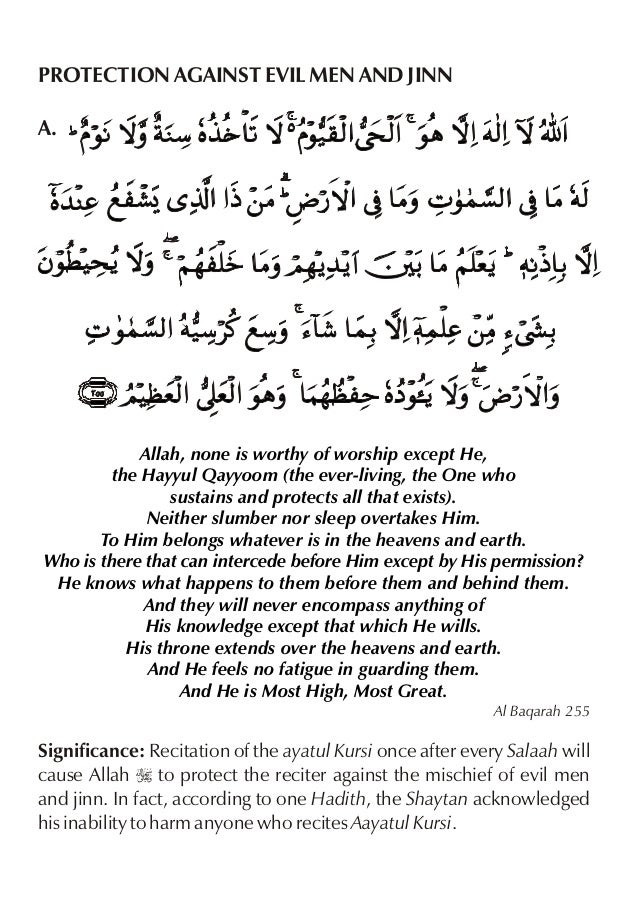 PROTECTION AGAINST EVIL MEN AND JINN
A. اَللّٰهُ لَاۤ اِلٰهَ اِلَّا هُوَ ۚ اَلْحَىُّ الْقَيُّوْمُ ۚ۬ لَا تَاْخُذُهٗ سِنَةٌ وَّلَا نَوْمٌ ؕ
لَهٗ مَا فِى السَّمٰوٰتِ وَمَا فِى الْاَرْضِ ؕ مَنْ ذَا الَّذِى يَشْفَعُ عِنْدَهٗۤ
اِلَّا بِاِذْنِهٖ ؕ يَعْلَمُ مَا بَيْنَ اَيْدِيْهِمْ وَمَا خَلْفَهُمْ ۚ وَلَا يُحِيْطُوْنَ
بِشَىْءٍ مِّنْ عِلْمِهٖۤ اِلَّا بِمَا شَآءَ ۚ وَسِعَ كُرْسِيُّهُ السَّمٰوٰتِ
وَالْاَرْضَ ۚ وَلَا يَئُوْدُهٗ حِفْظُهُمَا ۚ وَهُوَ الْعَلِىُّ الْعَظِيْمُ ۝٢٥٥
Allah, none is worthy of worship except He,
the Hayyul Qayyoom (the ever-living, the One who
sustains and protects all that exists).
Neither slumber nor sleep overtakes Him.
To Him belongs whatever is in the heavens and earth.
Who is there that can intercede before Him except by His permission?
He knows what happens to them before them and behind them.
And they will never encompass anything of
His knowledge except that which He wills.
His throne extends over the heavens and earth.
And He feels no fatigue in guarding them.
And He is Most High, Most Great.
Al Baqarah 255
Significance: Recitation of the ayatul Kursi once after every Salaah will
cause Allah to protect the reciter against the mischief of evil men
and jinn. In fact, according to one Hadith, the Shaytan acknowledged
his inability to harm anyone who recites Aayatul Kursi.